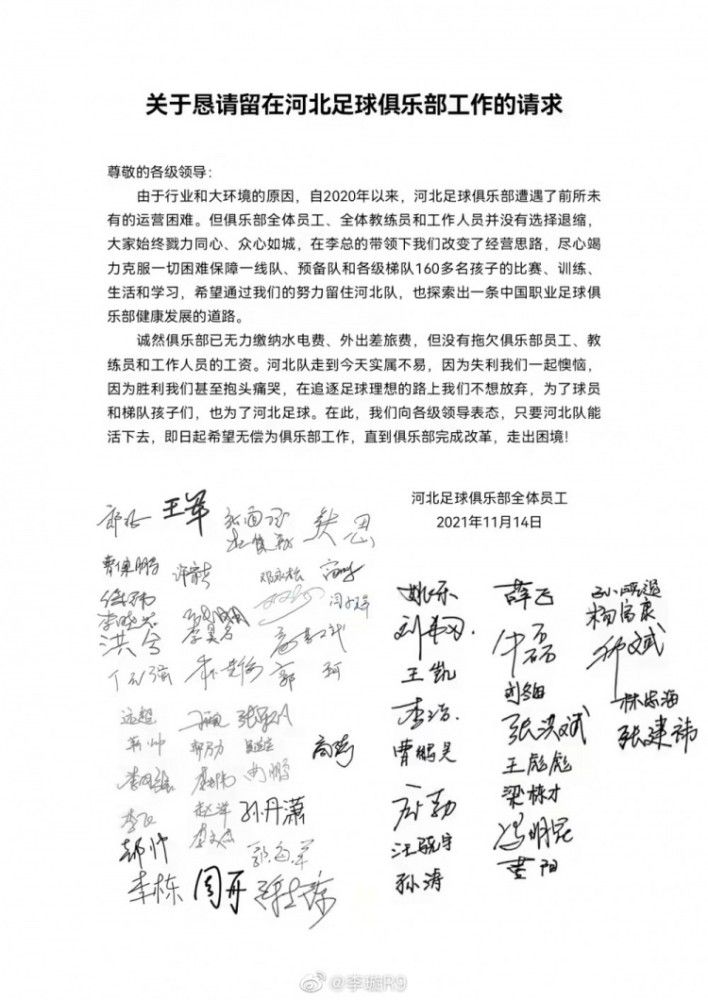 关于恳请留在河北足球俱乐部工作的请求
尊敬的各级领导：
由于行业和大环境的原因，自2020年以来，河北足球俱乐部遭遇了前所未
有的运营困难。但俱乐部全体员工、全体教练员和工作人员并没有选择退缩，
大家始终戮力同心、众心如城，在李总的带领下我们改变了经营思路，尽心竭
力克服一切困难保障一线队、预备队和各级梯队160多名孩子的比赛、训练、
生活和学习，希望通过我们的努力留住河北队，也探索出一条中国职业足球俱
乐部健康发展的道路。
诚然俱乐部已无力缴纳水电费、外出差旅费，但没有拖欠俱乐部员工、教
练员和工作人员的工资。河北队走到今天实属不易，因为失利我们一起懊恼，
因为胜利我们甚至抱头痛哭，在追逐足球理想的路上我们不想放弃，为了球员
和梯队孩子们，也为了河北足球。在此，我们向各级领导表态，只要河北队能
活下去，即日起希望无偿为俱乐部工作，直到俱乐部完成改革，走出困境！
河北足球俱乐部全体员工
2021年11月14日
王军
姚乐
薛飞
杨富康
李晓芯
洪兮
李昊名
牛磊
王凯
郭珂
林海
李浩
张洪斌
张建祎
曹鹏昊
高蕾
王彪彪
梁栋才
赵洋
孙丹潇
郝帅
汪骁宇
冯明昆
李栋
周冉
孙涛
董阳
@李璇R9